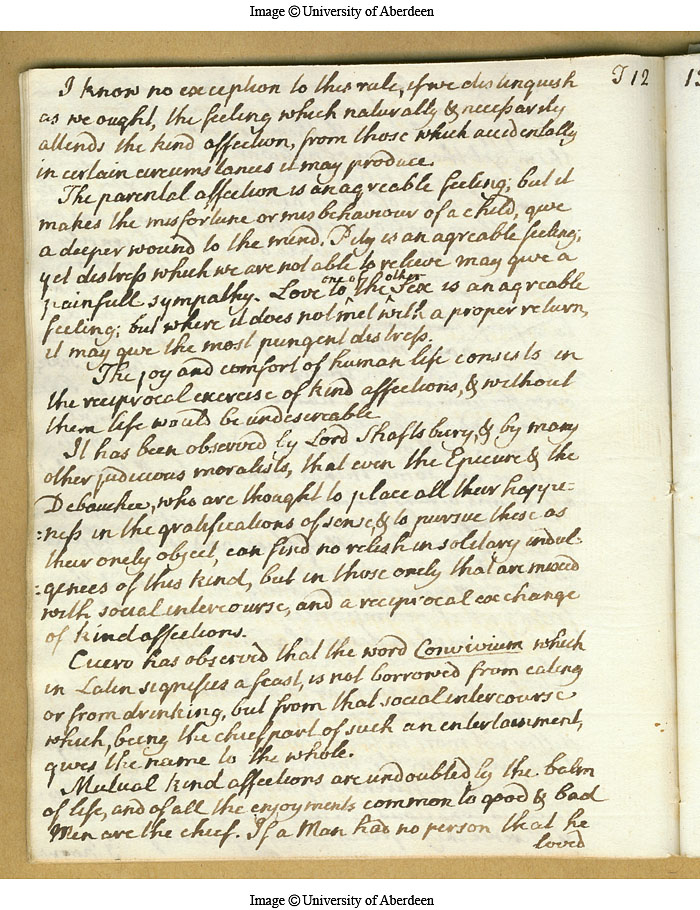 Image © University of Aberdeen
I know no exception to this rule, if we distinguish
J 12
as we ought, the feeling which naturally & necessarily
attends the kind affection, from those which accidentally
in certain circumstances it may produce.
The parental affection is an agreable feeling; but it
makes the misfortune or misbehaviour of a child, give
a deeper wound to the mind. Pity is an agreable feeling;
yet distress which we are not able to relieve may give a
painfull sympathy. Love to one of the other Sex is an agreable
feeling; but where it does not met with a proper return,
it may give the most pungent distress.
The joy and comfort of human life consists in
the reciprocal exercise of kind affections, & without
them life would be undesireable
It has been observed by Lord Shaftsbury, & by many
other judicious moralists, that even the Epicure & the
Debauchee, who are thought to place all their happi=
=ness in the gratifications of sense, & to pursue these as
their onely object, can find no relish in solitary indul=
=gences of this kind, but in those onely that are mixed
with social intercourse, and a reciprocal exchange
of kind affections.
Cicero has observed that the word Convivium which
in Latin signifies a feast, is not borrowed from eating
or from drinking, but from that social intercourse
which, being the chief part of such an entertainment,
gives the name to the whole.
Mutual kind affections are undoubtedly the balm
of life, and of all the enjoyments common to good & bad
Men are the chief. If a Man had no person that he
loved
Image © University of Aberdeen